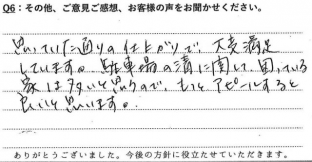 Q6：その他、ご意見ご感想、お客様の声をお聞かせください。
思っていた通りの仕上がりで、大変満足
しています。駐車場の溝に関して、困っている
家は多いと思うので、もっとアピールすると
良いと思います。
ありがとうございました。今後の方針に役立たせていただきます。